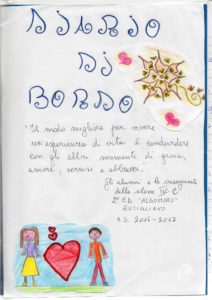 DIARIO
DI
BORDO
"Il modo migliore per vivere
un'esperienza di vita è condividere
con gli altri momenti di gioia,
amore, sorrisi e abbracci.
Gli alunni e le insegnanti
della classe IV C
2° CD "ALDO MORO"
RUTIGLIANO
A.S. 2016-2017